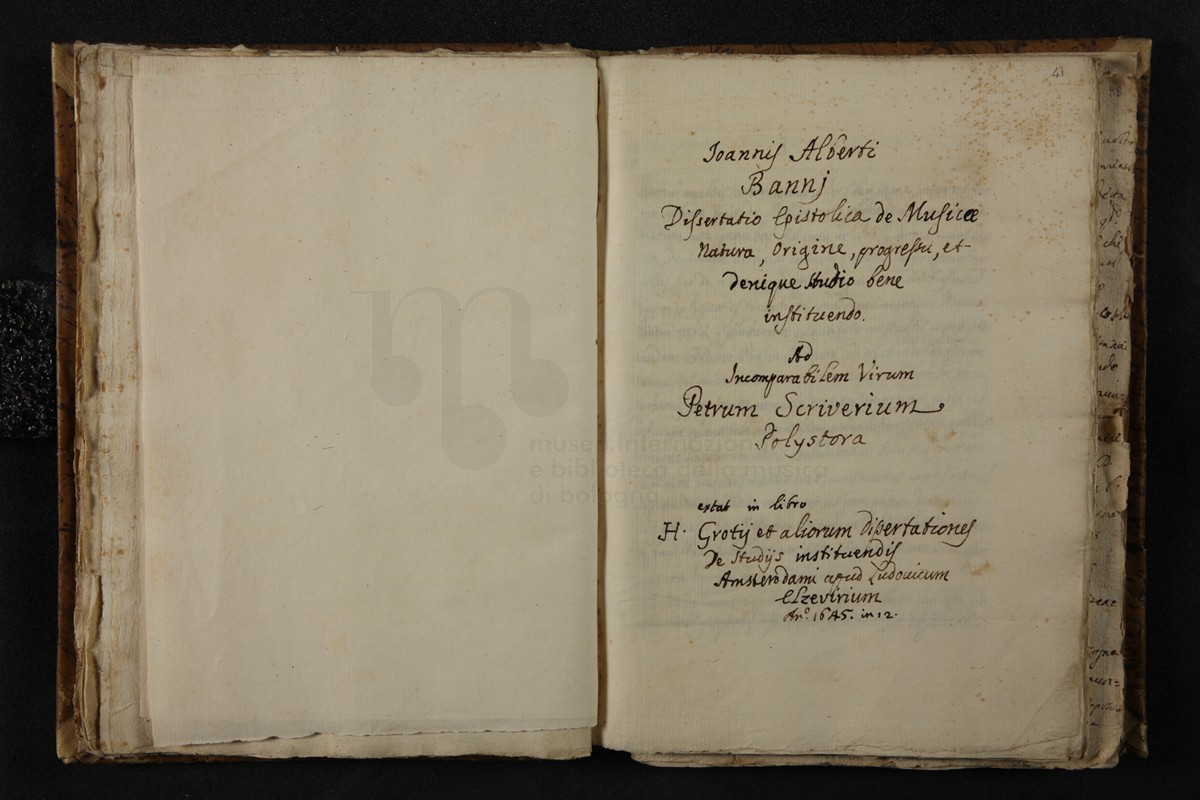 41
Joannis Alberti
Bannj
Dissertatio Epistolica de Musicæ
Natura, Origine, progressu, et
denique studio bene
instituendo.
Ad
Incomparabilem Virum
Petrum Scriverium
Polystora
museo internazionale
e biblioteca della musica
di bologna
extat in libro
H. Grotij et aliorum dissertationes
De Studijs instituendis
Amsterodami apud Ludovicum
Elzevirium
An.º 1645. in 12.